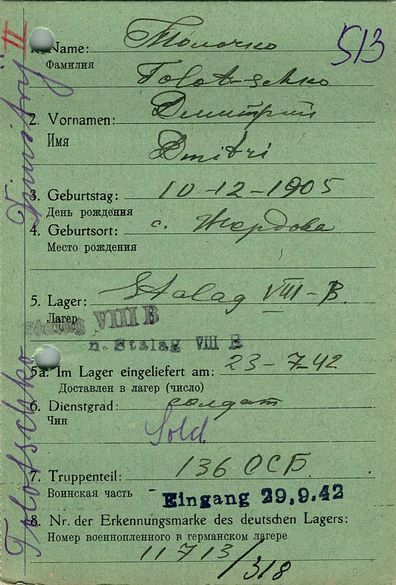 513
II
1. Name: Толочко
Фамилия
Tolot-schko
2. Vornamen: Дмитрий
Имя
Dmitri
3. Geburtstag: 10-12-1905
День рождения
4. Geburtsort: с. Жердова
Место рождения
5. Lager: Stalag VIII-B.
Лагер
Stalag VIII B
n. Stalag VIII B
5a. Im Lager eingeliefert am: 23-7-42
Доставлен в лагер (число)
6. Dienstgrad: солдат
Чин
Sold.
7. Truppenteil: 136 ОСБ.
Воинская часть
Eingang 29.9.42
8. Nr. der Erkennungsmarke des deutschen Lagers:
Номер военнопленного в германском лагере
11713/318
Tolotschko